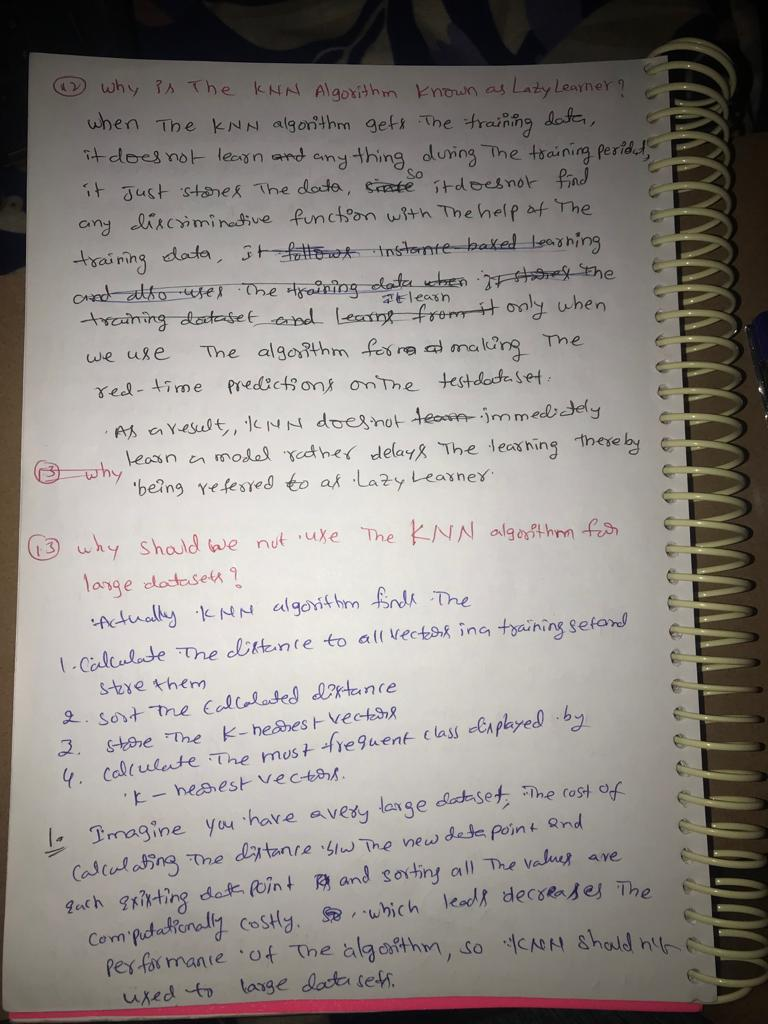 12 Why is The KNN Algorithm Known as Lazy Learner?
when The KNN algorithm gets The training data,
it does not learn and anything during The training period,
it just stores The data, since so it does not find
any discriminative function with The help of The
training data, it follows instance-based learning
and also uses The training data when it stores the
training dataset and learns from it it learn only when
we use The algorithm for making The
real-time predictions on The test dataset.
As a result, KNN does not learn immediately
learn a model rather delays The learning thereby
13 why being referred to as Lazy Learner.
13 why should we not use The KNN algorithm for
large datasets?
Actually KNN algorithm finds The
1. Calculate The distance to all vectors in a training set and
store them
2. sort The Calculated distance
3. store The K-nearest vectors
4. Calculate The most frequent class displayed by
K-nearest vectors.
1. Imagine you have a very large dataset, The cost of
Calculating The distance b/w The new data point and
each existing data point and sorting all The values are
computationally costly. So, which leads decreases The
performance of The algorithm, so KNN should n't
used to large datasets.